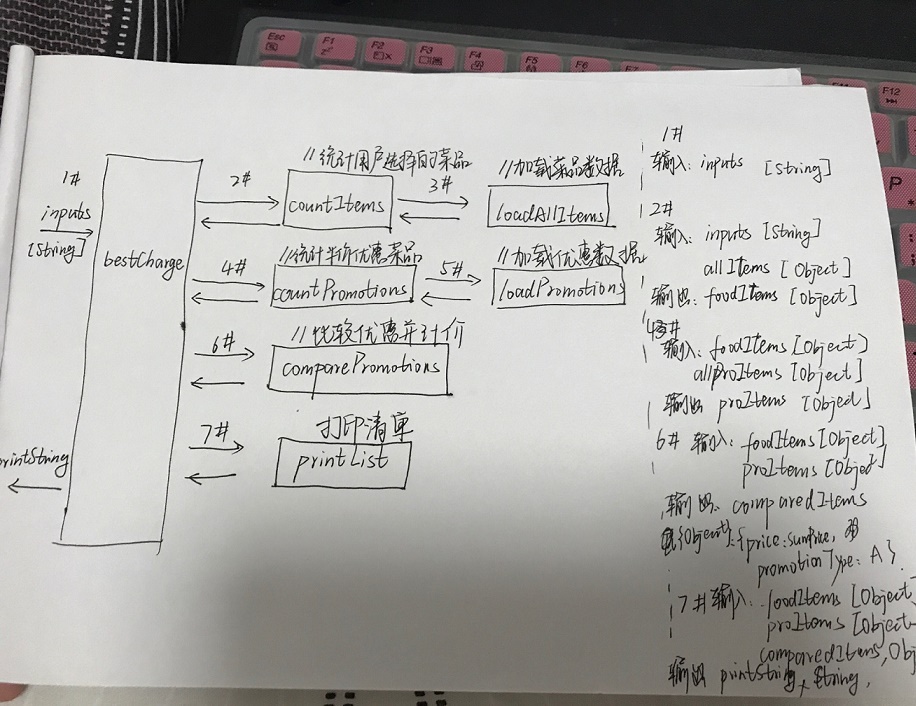 Esc
F1
F2
F3
F4
F5
F6
F7
F12
P
1#
inputs
[String]
bestCharge
2#
//统计用户选择的菜品
countItems
3#
//加载菜品数据
loadAllItems
4#
//统计半价优惠菜品
countPromotions
5#
//加载优惠数据
loadPromotions
6#
//比较优惠并计价
comparePromotions
7#
打印清单
printList
printString
1#
输入: inputs [String]
2#
输入: inputs [String]
allItems [Object]
输出: foodItems [Object]
4#
输入: foodItems [Object]
allProItems [Object]
输出 proItems [Object]
6# 输入: foodItems [Object]
proItems [Object]
输出: comparedItems
{Object}: {price: sumPrice,
promotionType: A}.
7# 输入: foodItems [Object
proItems [Object
comparedItems, Obj
输出 printString, String,